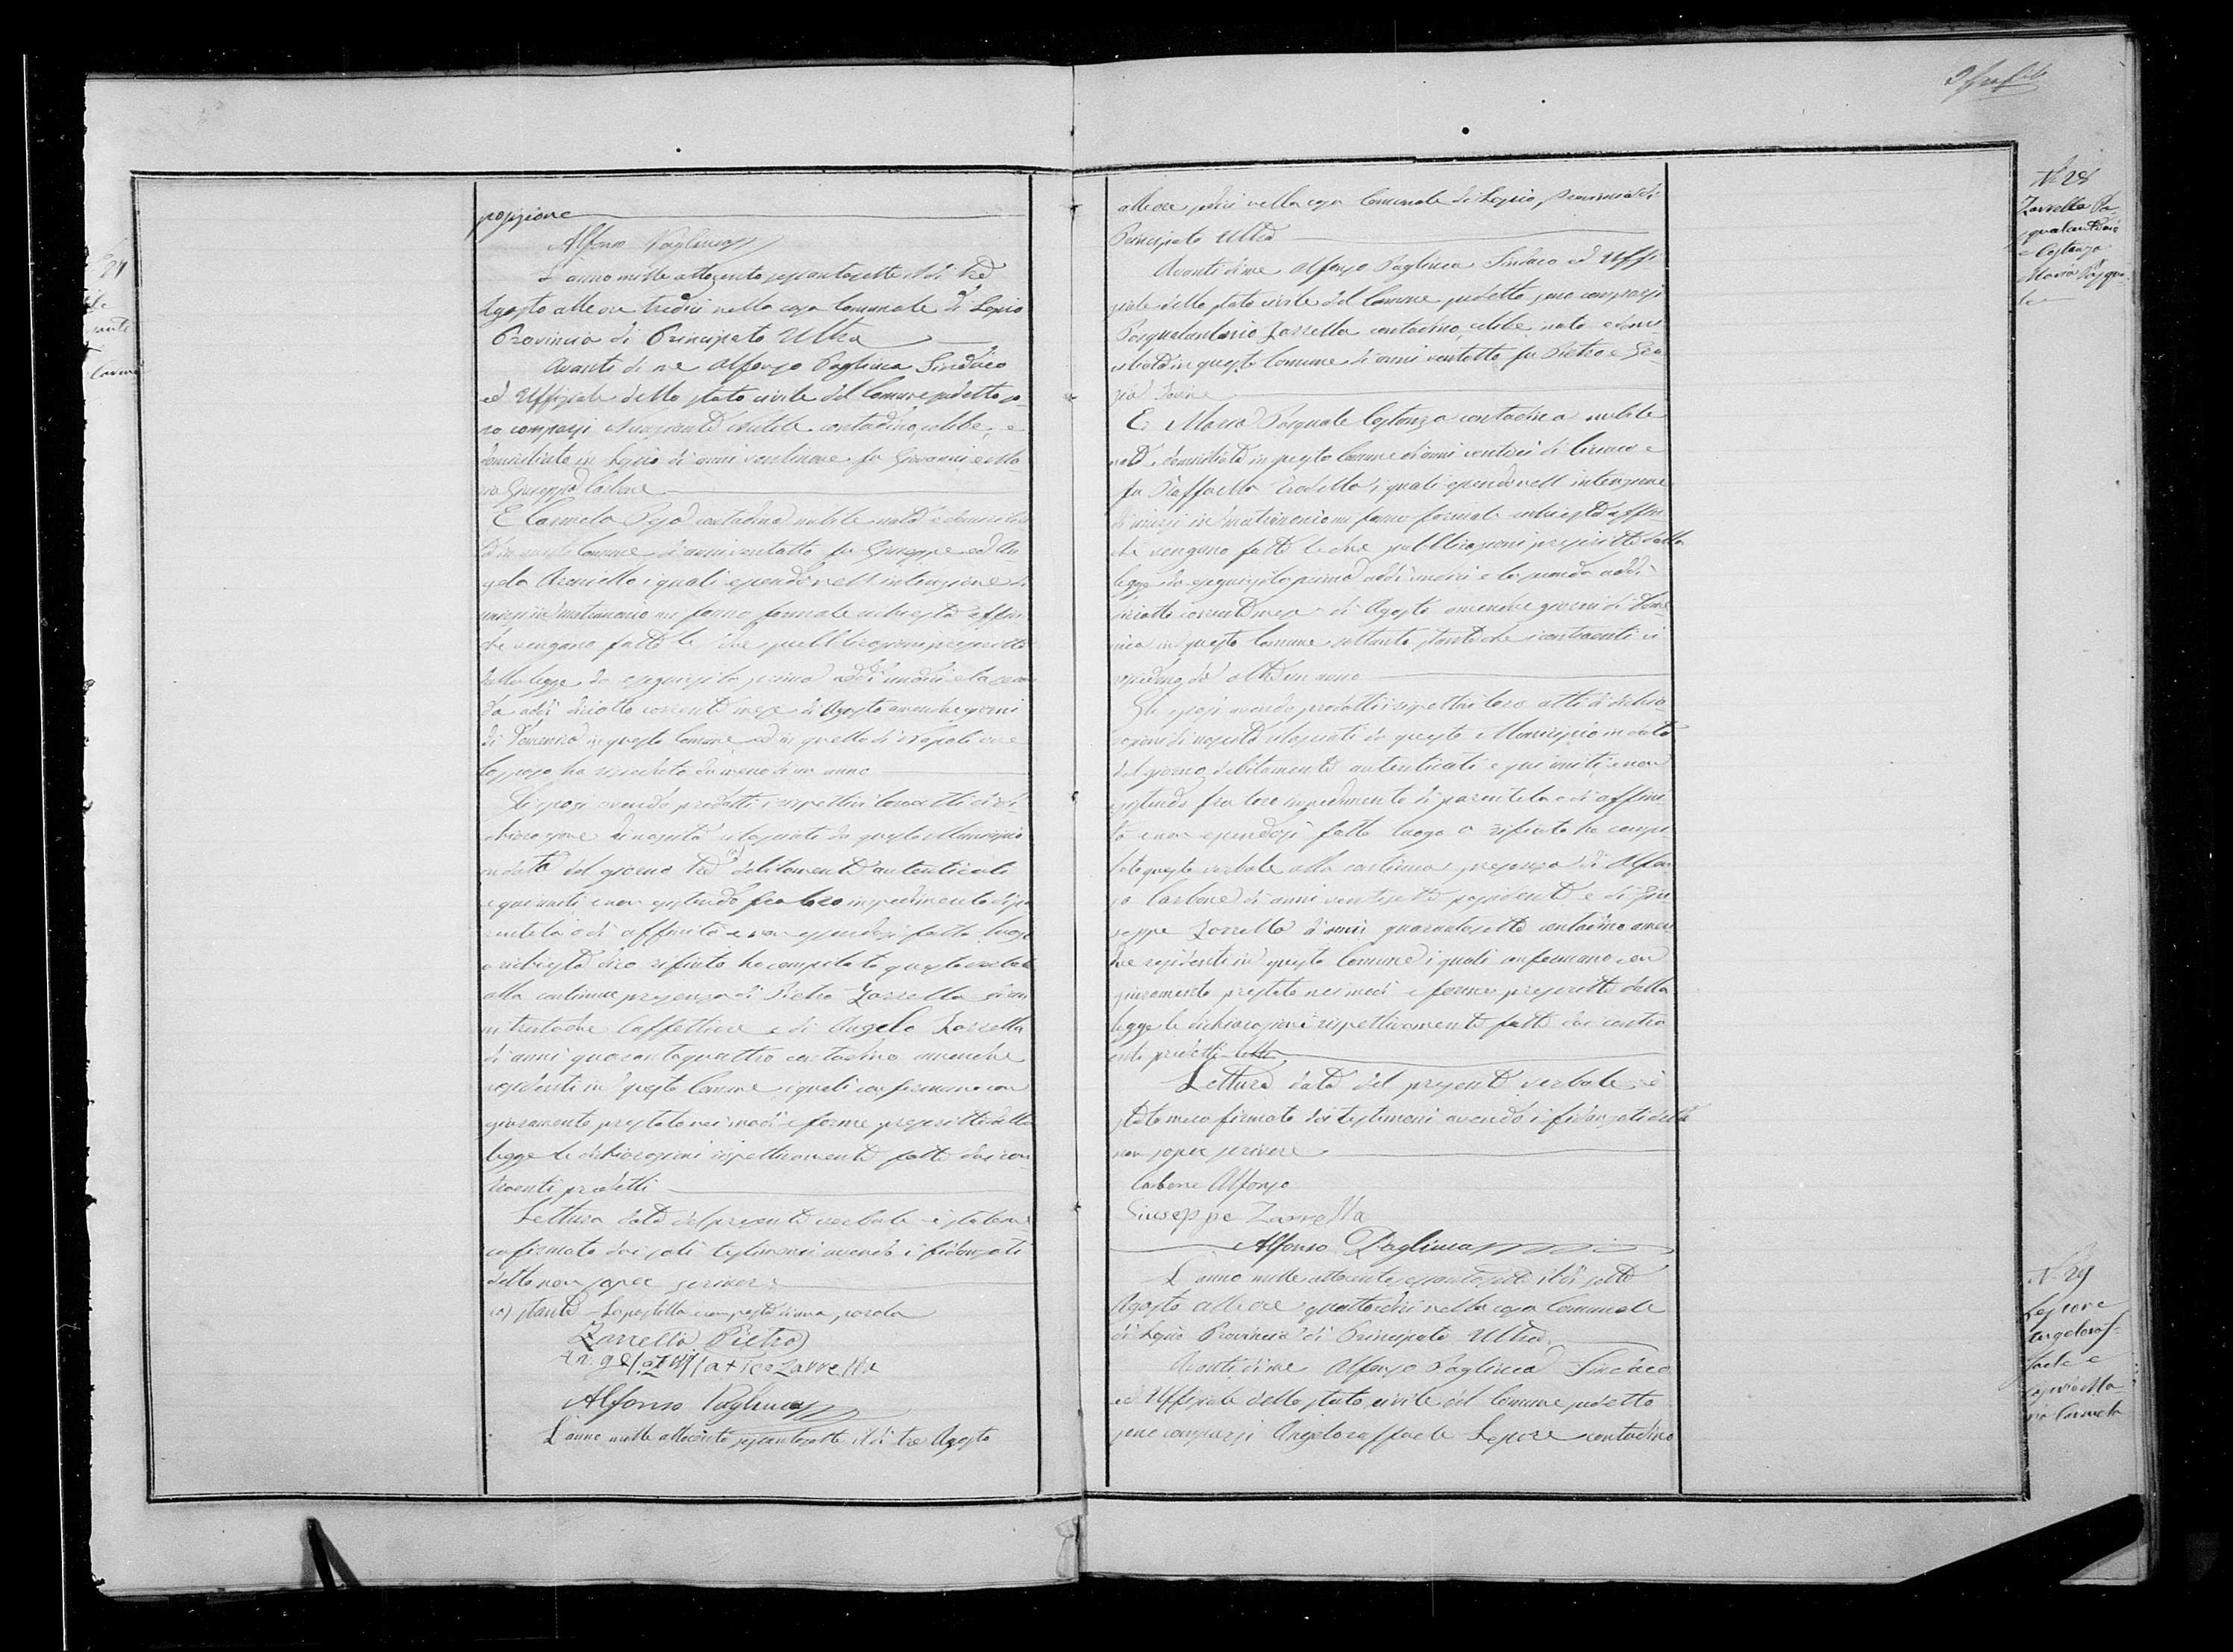 possizione
Alfonso Pagliuca
L'anno mille ottocento sessantasette il dì tre
Agosto alle ore tredici nella casa Comunale di Lapio
Provincia di Principato Ultra
Avanti di me Alfonso Pagliuca Sindaco
ed Uffiziale dello stato civile del Comune sudetto so-
no comparsi contadino, celibe, e
domiciliato in Lapio di anni ventinove fu Giovanni e Ma
ria Giuseppa Carbone
E Carmela contadina nubile nata e domicilia
ta in questo Comune di anni ventotto fu Giuseppe ed An
gela i quali essendo nell'intenzione di
unirsi in matrimonio mi fanno formale richiesta affin
che vengano fatte le due pubblicazioni prescritte
dalla legge da eseguirsi la prima addì undici e la secon
da addì diciotto corrente mese di Agosto amendue giorni
di Domenica in questo Comune ed in quello di Napoli ove
lo sposo ha risieduto da meno di un anno
Gli sposi avendo prodotti i rispettivi loro atti di di
chiarazione di nascita rilasciati da questo Municipio
in data del giorno tre (a) debitamente autenticati
e qui uniti e non esistendo fra loro impedimento di pa
rentela o di affinità e non essendosi fatto luogo
a richiesta dico rifiuto ho compilato questo verbale
alla continua presenza di Pietro Zarrella di an
ni trentadue Caffettiere e di Angelo Zarrella
di anni quarantaquattro contadino amendue
residenti in questo Comune i quali confermano con
giuramento prestato nei modi e forme prescritte dalla
legge le dichiarazioni rispettivamente fatte dai con
traenti predetti
Lettura data del presente verbale è stato me
co firmato dai soli testimoni avendo i fidanzati
detto non saper scrivere
(a) stante - La postilla composta di una parola
Zarrella Pietro
Zarrella
Alfonso Pagliuca
L'anno mille ottocento sessantasette il dì tre Agosto
alle ore sedici nella casa Comunale di Lapio, Provincia di
Principato Ultra
Avanti di me Alfonso Pagliuca Sindaco ed Uffi-
ziale dello stato civile del Comune sudetto sono comparsi
Pasqualantonio Zarrella contadino, celibe nato e domi-
ciliato in questo Comune di anni ventotto fu Pietro e Gra-
zia
E Maria Pasquale Costanza contadina nubile
nata e domiciliata in questo Comune di anni ventisei di Ciriaco e
fu Raffaella i quali essendo nell'intenzione
di unirsi in matrimonio mi fanno formale richiesta affin-
chè vengano fatte le due pubblicazioni prescritte dalla
legge da eseguirsi la prima addì undici e la seconda addì
diciotto corrente mese di Agosto amendue giorni di Dome-
nica in questo Comune soltanto stante che i contraenti vi
risiedono da oltre un anno
Gli sposi avendo prodotti i rispettivi loro atti di dichia-
razioni di nascita rilasciati da questo Municipio in data
del giorno, debitamente autenticati e qui uniti, e non
esistendo fra loro impedimento di parentela o di affini-
tà e non essendosi fatto luogo a rifiuto ho compi-
lato questo verbale alla continua presenza di Alfon
so Carbone di anni ventisette possidente e di Giu-
seppe Zarrella di anni quarantasette contadino amen
due residenti in questo Comune i quali confermano con
giuramento prestato nei modi e forme prescritte dalla
legge le dichiarazioni rispettivamente fatte dai contra
enti predetti
Lettura data del presente verbale è
stato meco firmato dai testimoni avendo i fidanzati detto
non saper scrivere
Carbone Alfonso
Giuseppe Zarrella
Alfonso Pagliuca
L'anno mille ottocento sessantasette il dì sette
Agosto alle ore quattordici nella casa Comunale
di Lapio Provincia di Principato Ultra
Avanti di me Alfonso Pagliuca Sindaco
ed Uffiziale dello stato civile del Comune sudetto
sono comparsi Angeloraffaele Lepore contadino
N. 28
Zarrella Pa
squalantonio
e Costanza
Maria Pasqua-
le
N. 29
Lepore
Angeloraf-
faele e
Ma-
ria Carmela